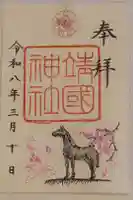 奉拝
靖國
神社
令和八年三月十日